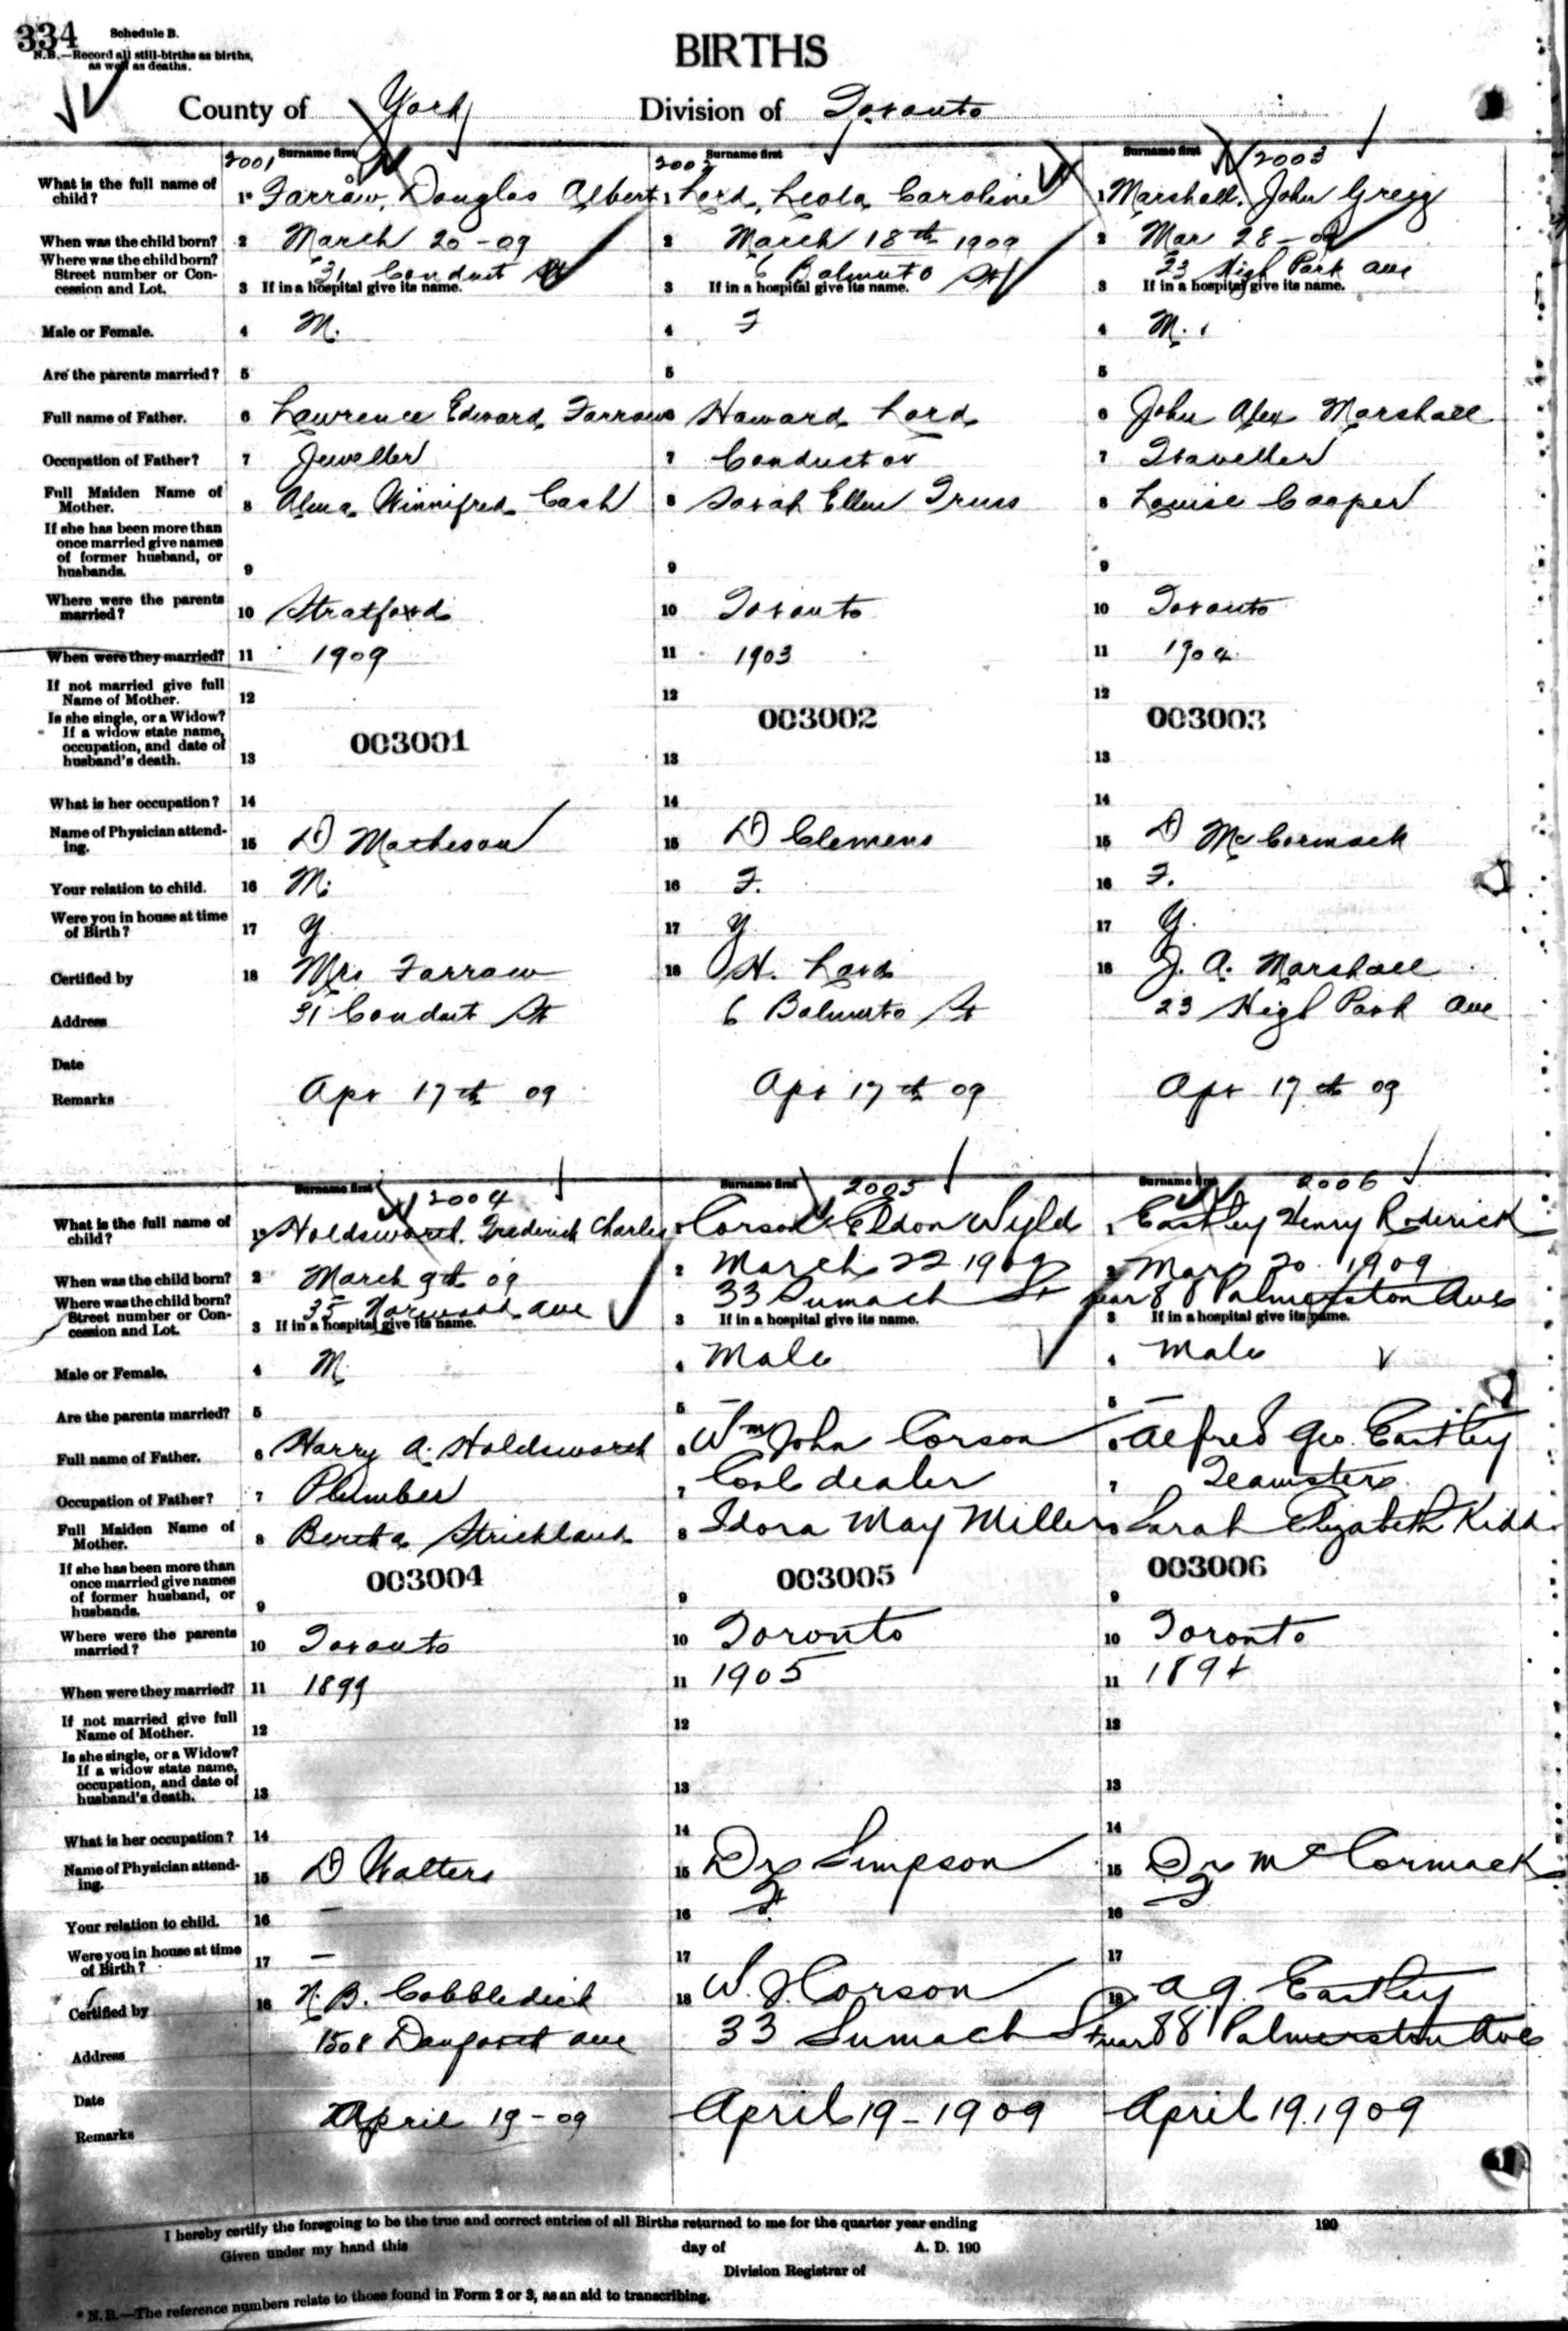 334
Schedule B.
N.B.—Record all still-births as births,
as well as deaths.
BIRTHS
County of York Division of Toronto
2001 Surname first
2002 Surname first
Surname first 2003
What is the full name of
child?
1* Farrow, Douglas Albert
1 Lord, Leola Caroline
1 Marshall, John Gregg
When was the child born?
2 March 20 - 09
2 March 18th 1909
2 Mar 28 - 09
Where was the child born?
Street number or Con-
cession and Lot.
31 Conduit St
3 If in a hospital give its name.
6 Balmuto St
3 If in a hospital give its name.
23 High Park Ave
3 If in a hospital give its name.
Male or Female.
4 M.
4 F
4 M.
Are the parents married?
5
5
5
Full name of Father.
6 Lawrence Edward Farrow
6 Howard Lord
6 John Alex Marshall
Occupation of Father?
7 Jeweller
7 Conductor
7 Traveller
Full Maiden Name of
Mother.
8 Alma Winnifred Cash
8 Sarah Ellen Truss
8 Louise Cooper
If she has been more than
once married give names
of former husband, or
husbands.
9
9
9
Where were the parents
married?
10 Stratford
10 Toronto
10 Toronto
When were they married?
11 1909
11 1903
11 1904
If not married give full
Name of Mother.
12
12
12
Is she single, or a Widow?
If a widow state name,
occupation, and date of
husband's death.
003001
003002
003003
13
13
13
What is her occupation?
14
14
14
Name of Physician attend-
ing.
15 D Matheson
15 D Clemens
15 D McCormack
Your relation to child.
16 M.
16 F.
16 F.
Were you in house at time
of Birth?
17 Y
17 Y
17 Y.
Certified by
18 Mrs Farrow
18 H. Lord
18 J. A. Marshall
Address
31 Conduit St
6 Balmuto St
23 High Park Ave
Date
Remarks
Apr 17th 09
Apr 17th 09
Apr 17th 09
Surname first 2004
Surname first 2005
Surname first 2006
What is the full name of
child?
1* Holdsworth, Frederick Charles
1 Corson Eldon Wyld
1 Eastley Henry Roderick
When was the child born?
2 March 9th 09
2 March 22 1909
2 Mar 20 1909
Where was the child born?
Street number or Con-
cession and Lot.
35 Norwood Ave
3 If in a hospital give its name.
33 Sumach St
3 If in a hospital give its name.
rear 88 Palmerston Ave
3 If in a hospital give its name.
Male or Female.
4 M
4 Male
4 Male
Are the parents married?
5
5 —
5 —
Full name of Father.
6 Harry A. Holdsworth
6 Wm John Corson
6 Alfred Geo. Eastley
Occupation of Father?
7 Plumber
7 Coal dealer
7 Teamster
Full Maiden Name of
Mother.
8 Bertha Strickland
8 Idora May Miller
8 Sarah Elizabeth Kidd
If she has been more than
once married give names
of former husband, or
husbands.
003004
003005
003006
9
9
9
Where were the parents
married?
10 Toronto
10 Toronto
10 Toronto
When were they married?
11 1899
11 1905
11 1894
If not married give full
Name of Mother.
12
12
12
Is she single, or a Widow?
If a widow state name,
occupation, and date of
husband's death.
13
13
13
What is her occupation?
14
14
14
Name of Physician attend-
ing.
15 D Walters
15 Dr Simpson
15 Dr McCormack
Your relation to child.
16 —
16 F.
16 F
Were you in house at time
of Birth?
17 —
17
17
Certified by
18 N. B. Cobbledick
18 W. J. Corson
18 A G. Eastley
Address
1508 Danforth Ave
33 Sumach St
rear 88 Palmerston Ave
Date
Remarks
April 19 - 09
April 19 - 1909
April 19. 1909
I hereby certify the foregoing to be the true and correct entries of all Births returned to me for the quarter year ending 190
Given under my hand this day of A. D. 190
Division Registrar of
* N.B.—The reference numbers relate to those found in Form 2 or 3, as an aid to transcribing.